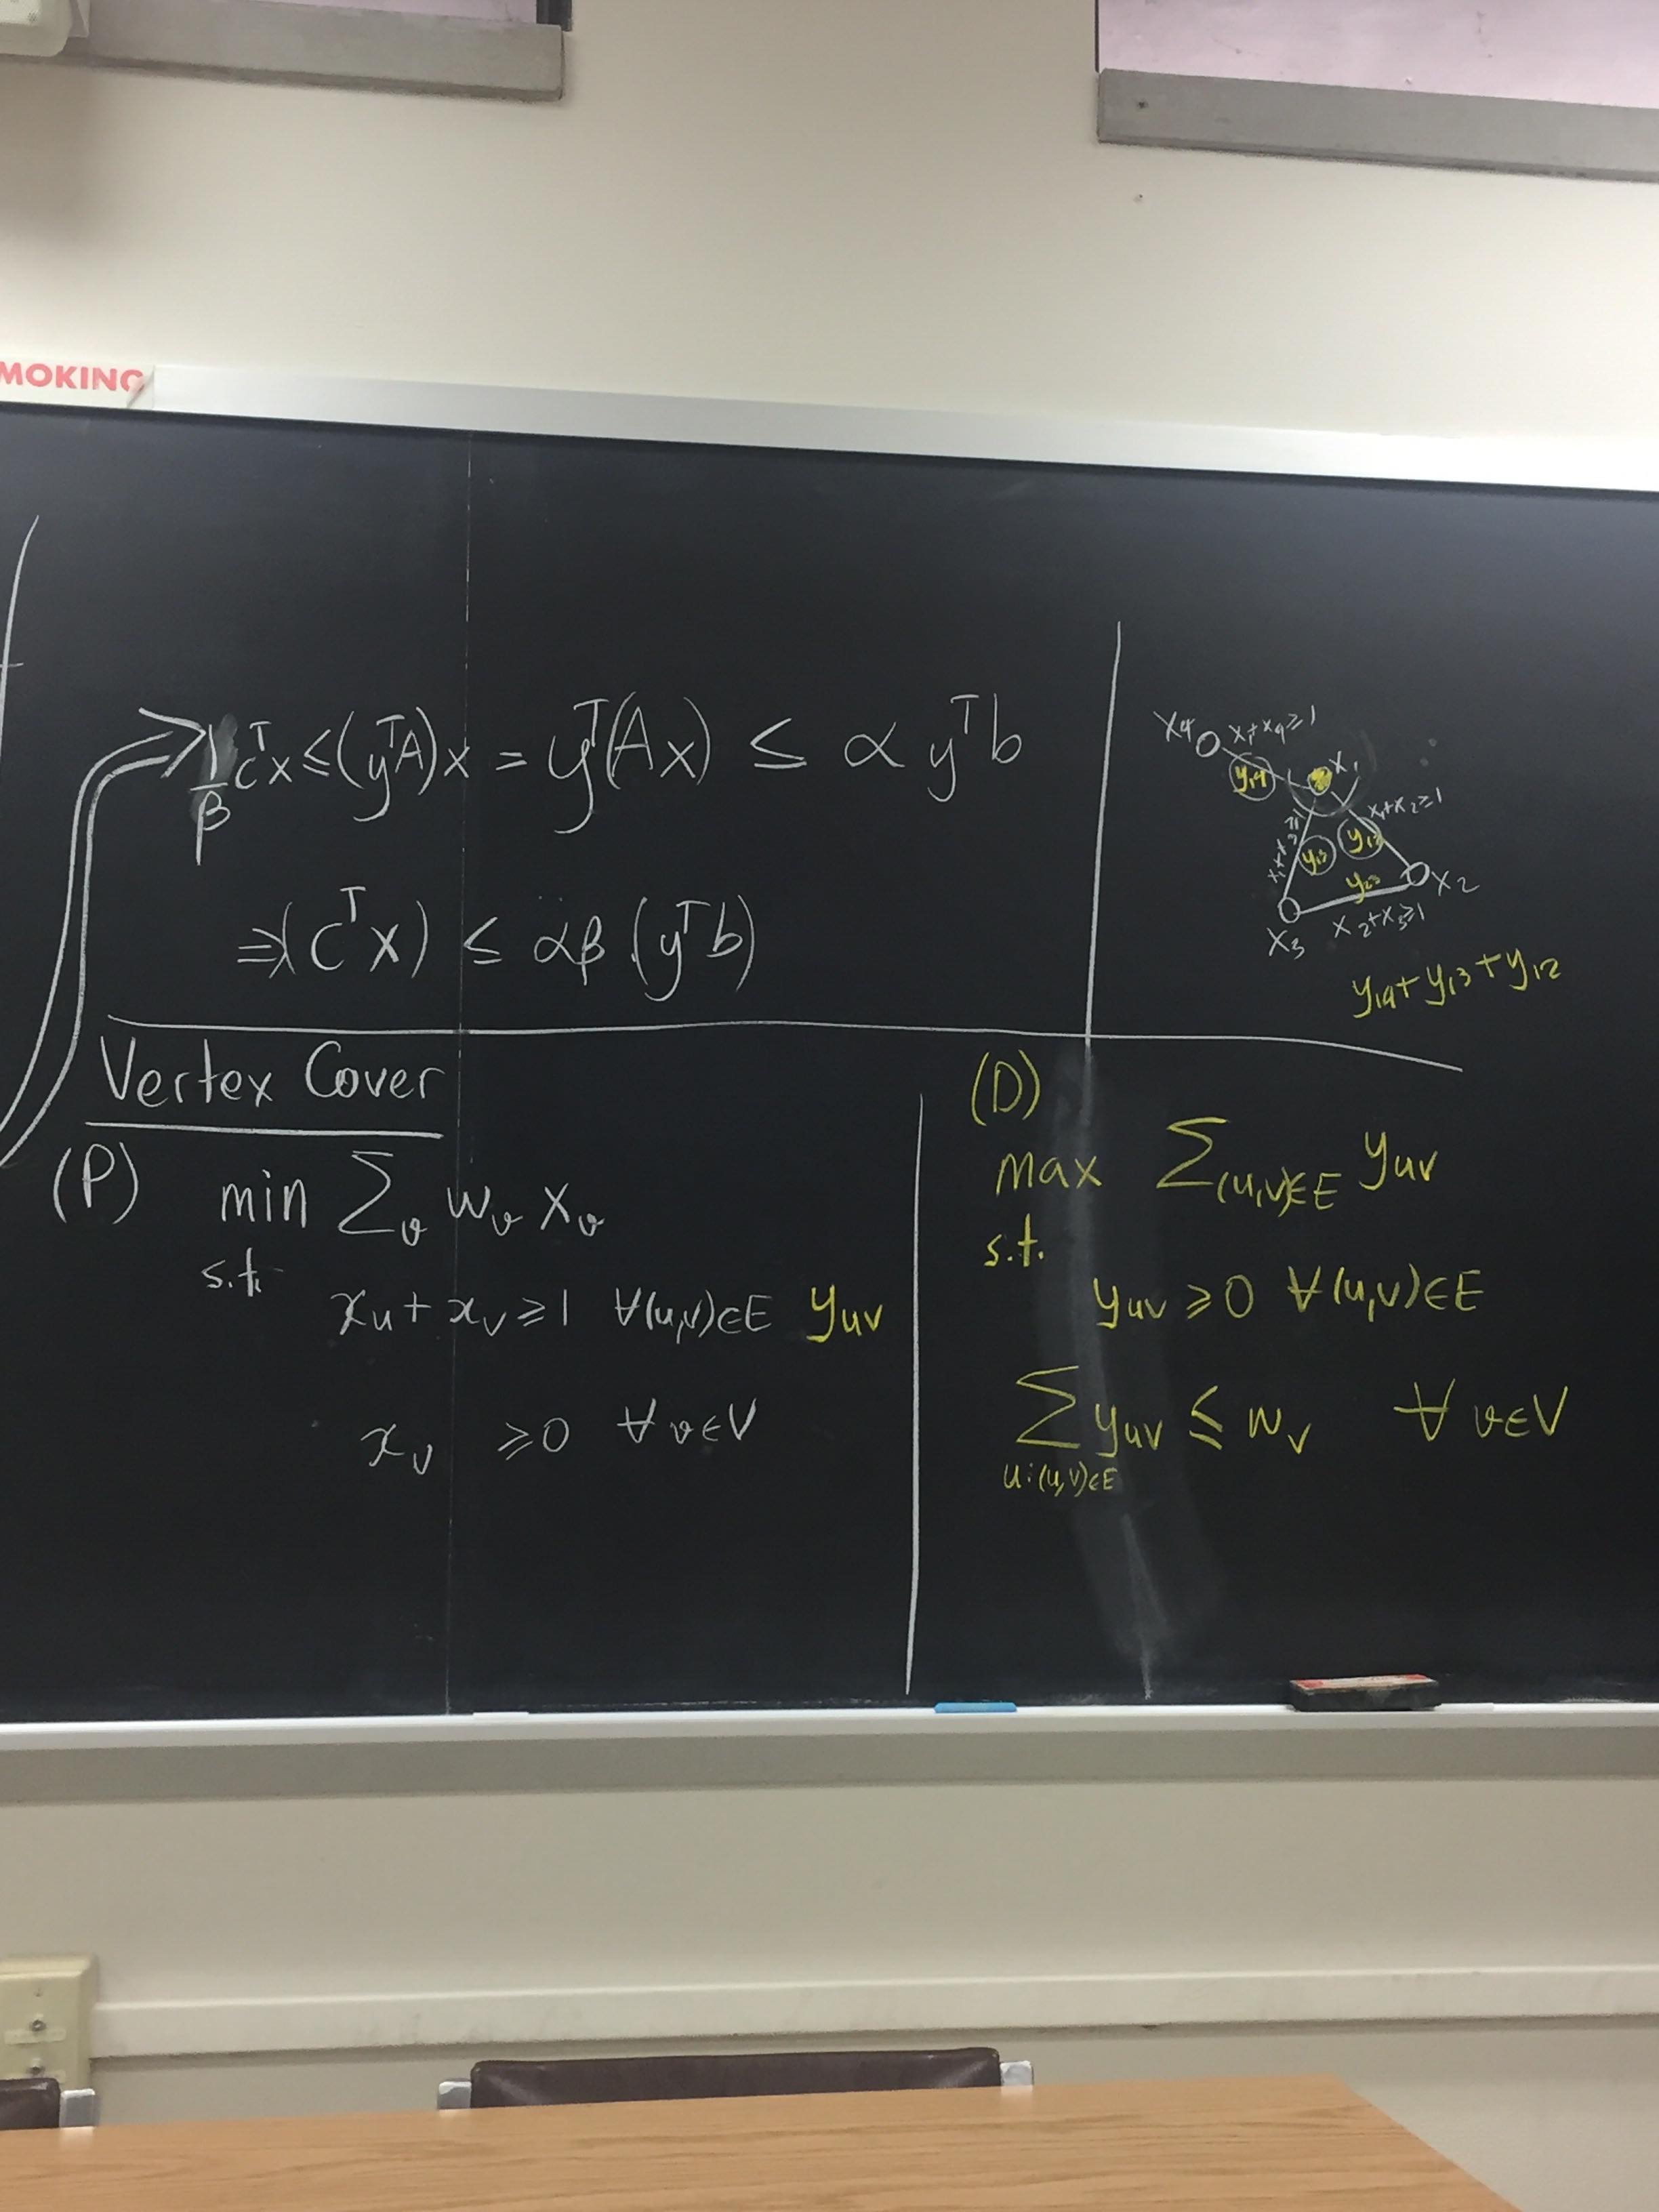 MOKING
1/β cᵀx ≤ (yᵀA)x = yᵀ(Ax) ≤ α yᵀb
⇒ (cᵀx) ≤ αβ (yᵀb)
x4
x1+x4≥1
y14
x1
x1+x2≥1
x1+x3≥1
y13
y12
y23
x2
x2+x3≥1
x3
y14+y13+y12
Vertex Cover
(P) min Σv wv xv
s.t.
xu + xv ≥ 1 ∀(u,v)∈E yuv
xv ≥ 0 ∀ v∈V
(D)
max Σ(u,v)∈E yuv
s.t.
yuv ≥ 0 ∀(u,v)∈E
Σ yuv ≤ wv ∀ v∈V
u:(u,v)∈E